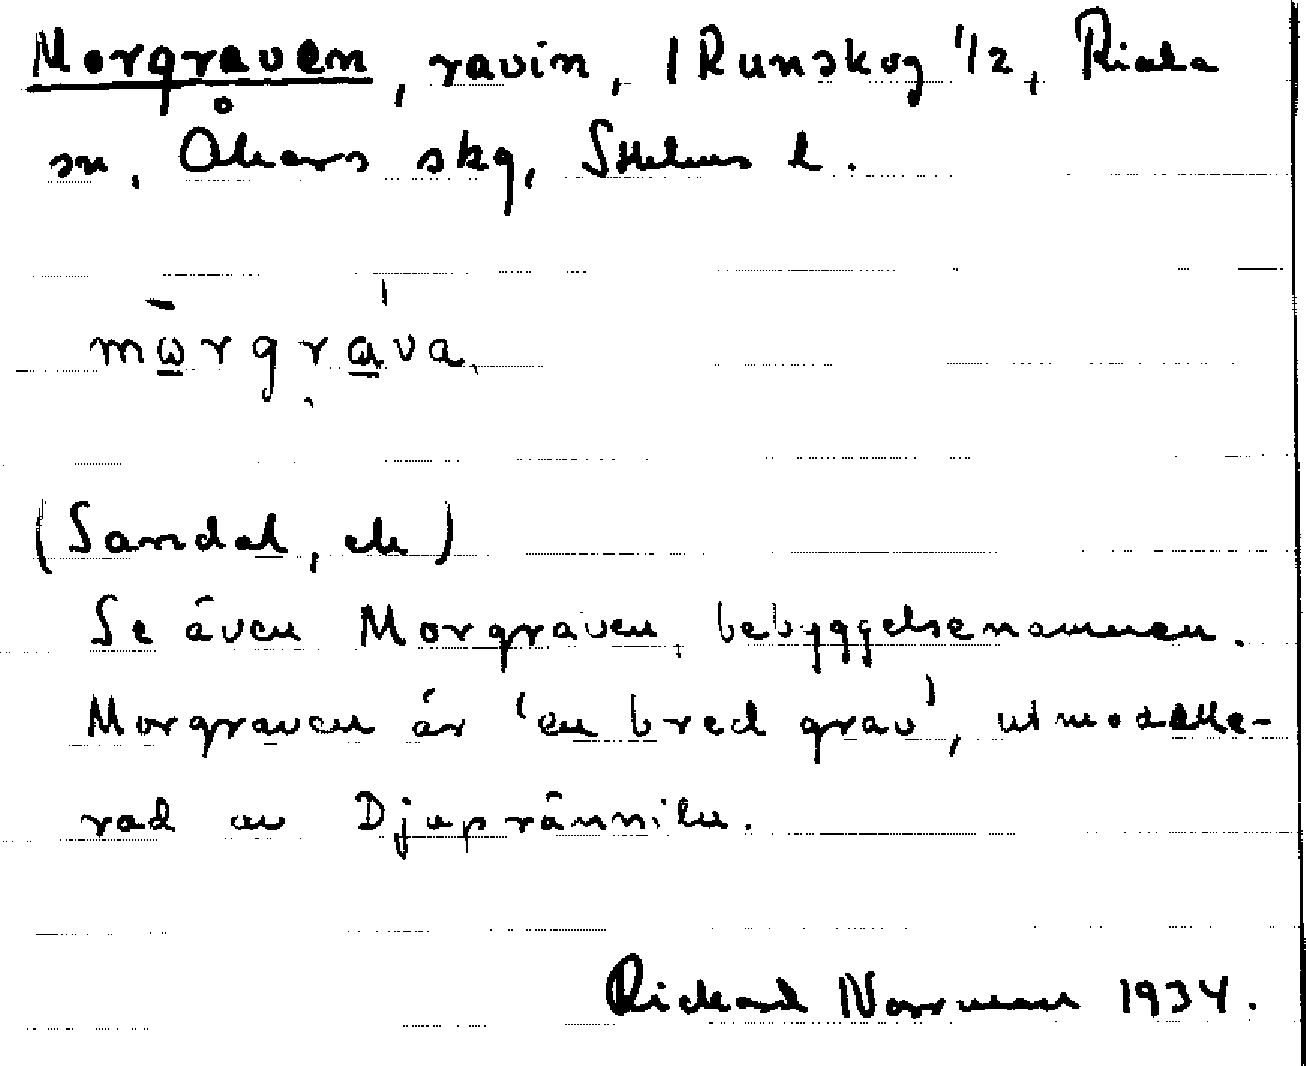 Morgraven, ravin, /Runskog 1/2, Riala
sn, Åkers skg, Sthlms l.
mωrgrava.
(Sandal, ek)
Se även Morgraven, bebyggelsenamnen.
Morgraven är 'en bred grav', utmodelle-
rad av Djuprännilen.
Rickard Norrman 1934.